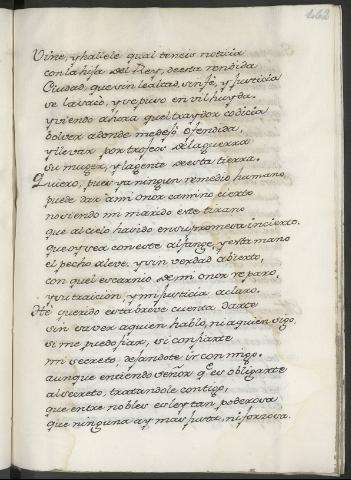 162
Vine, y hallele qual teneis noticia
con la hija del Rey, de esta rendida
Ciudad, que sin lealtad, sin fé, y justicia
se la sacó, y se puso en vil huyda.
y viendo ahora quel traydor codicia
bolver adonde me dejó ofendida,
y llevar por trofeos de la guerra
su muger, y la gente de esta tierra.
Quiero, pues ya ningun remedio humano
puede dar a mi onor camino cierto
no siendo mi marido este tirano
que al cielo ha sido en su promesa incierto.
que oy sea con este alfange, y esta mano
el pecho aleve, y sin verdad abierto,
con que el escarnio de mi onor reparo,
y su traicion, y mi justicia aclaro.
Hé querido esta breve cuenta darte
sin saver a quien hablo, ni a quien sigo,
si me puedo fiar, si confiarte
mi secreto, dejandote ir conmigo.
aunque entiendo señor qe. es obligarte
al secreto, tratandole contigo,
que entre nobles es ley tan poderosa
que ninguna ay mas justa, ni forzosa.